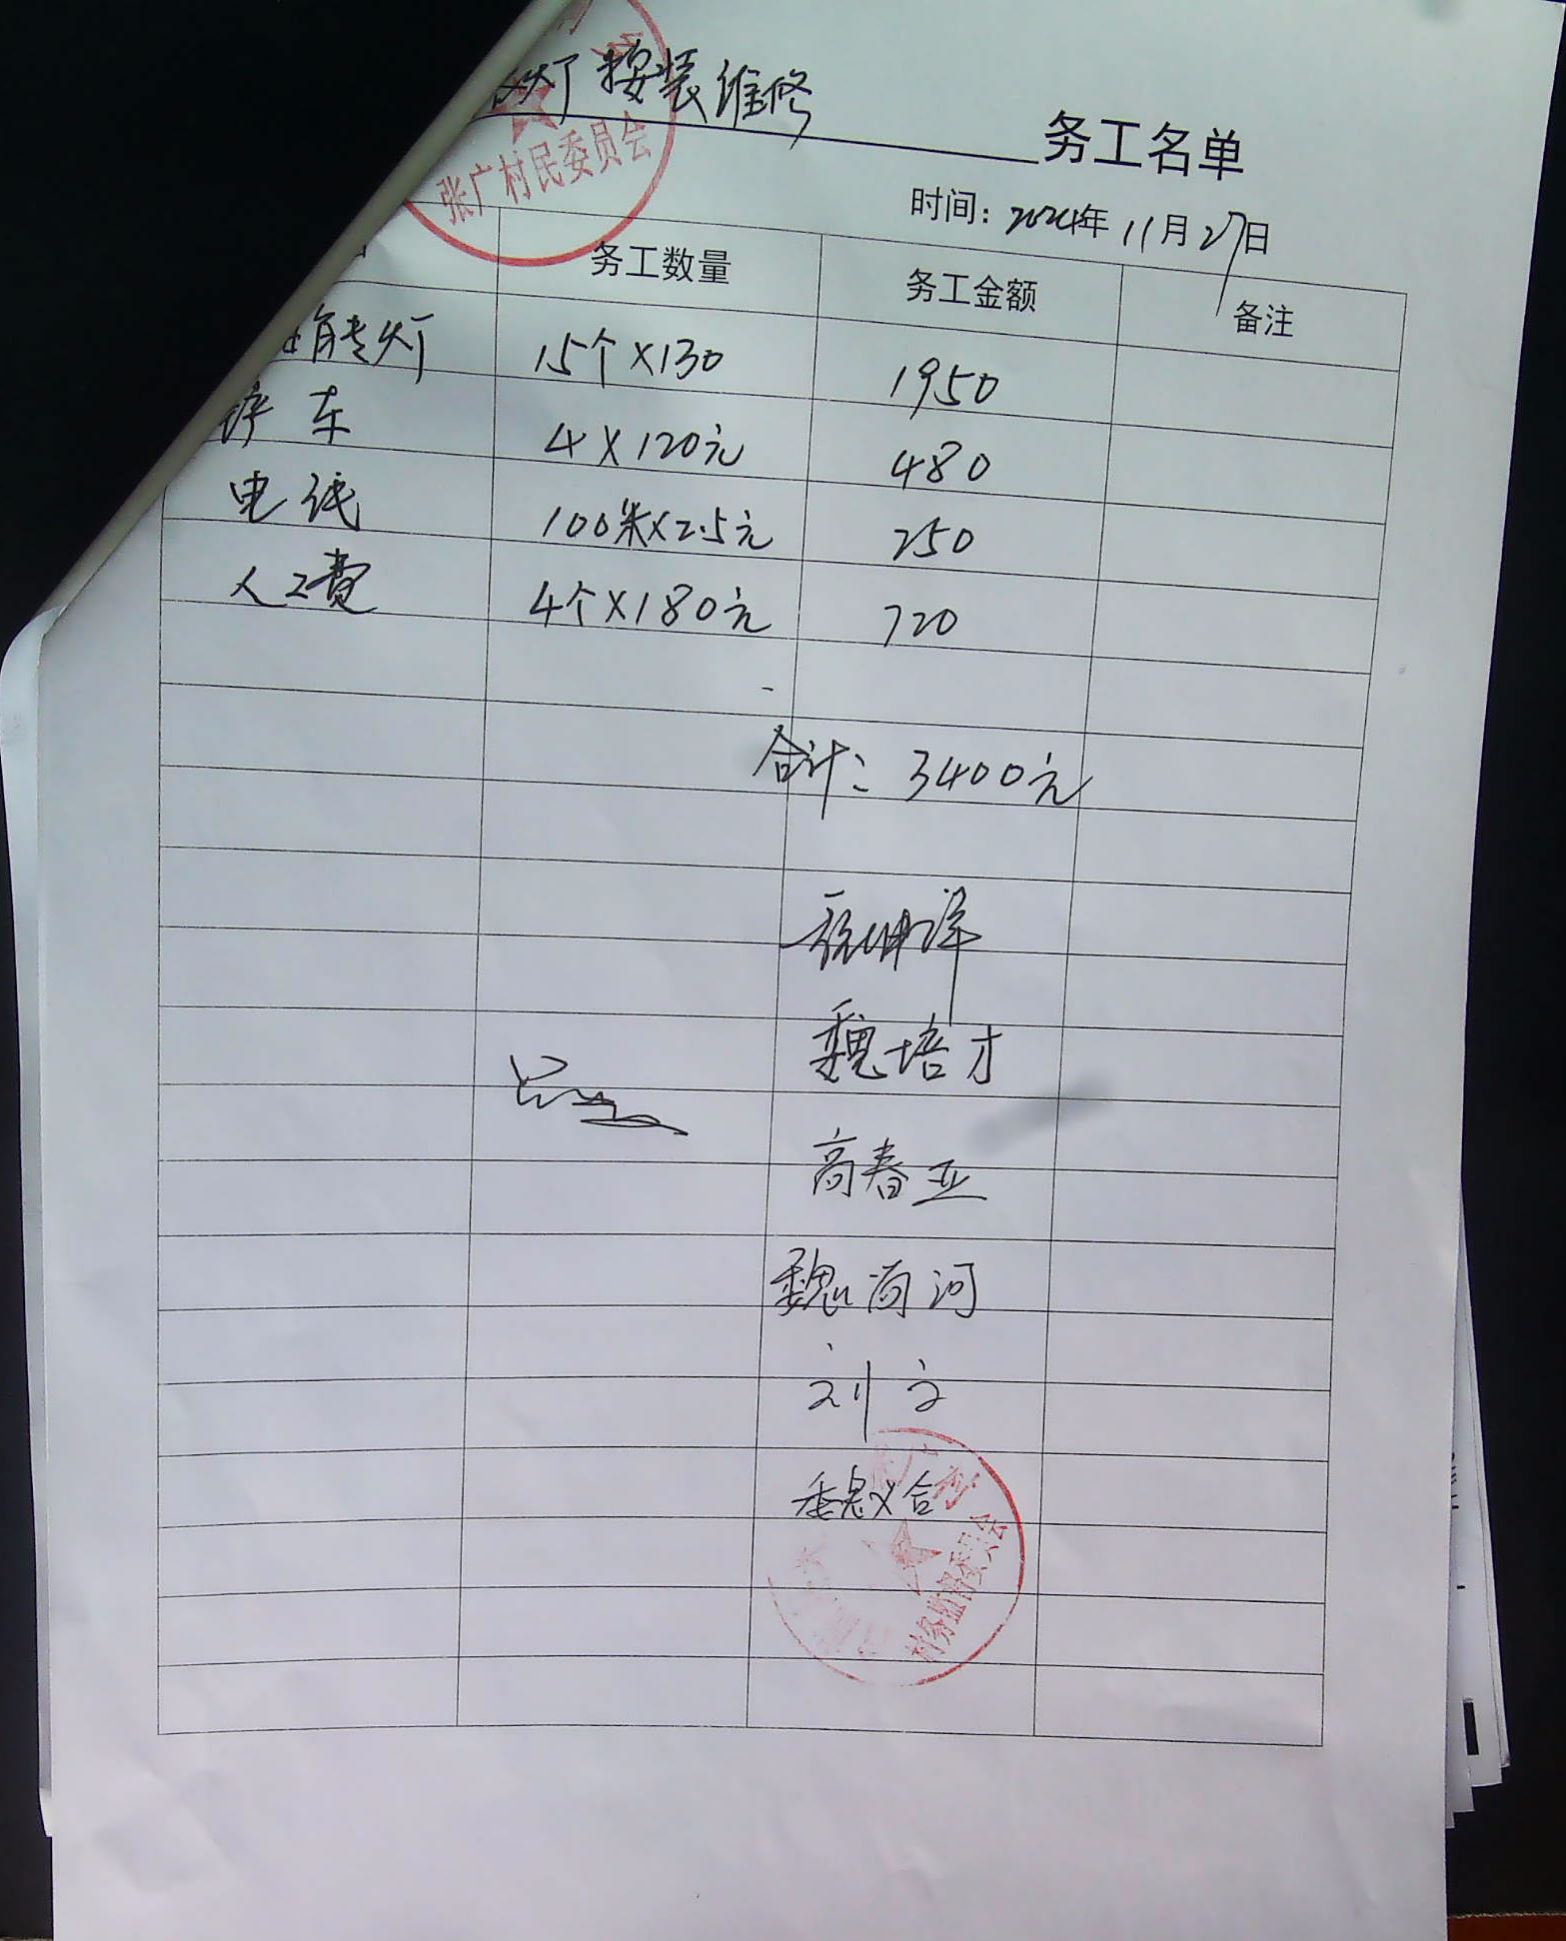 灯按装维修 务工名单
张广村民委员会
时间：2024年11月27日
务工数量 务工金额 备注
能灯 15个×130 1950
车 4×120元 480
电线 100米×2.5元 250
人工费 4个×180元 720
合计：3400元
魏培才
高春亚
魏尚河
刘立
魏义合
广村
村务监督委员会